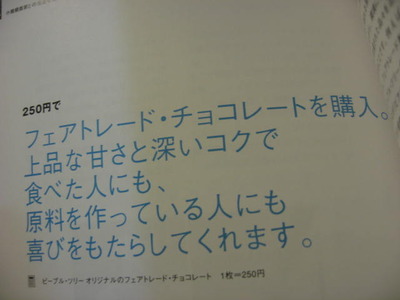 250円で
フェアトレード・チョコレートを購入。
上品な甘さと深いコクで
食べた人にも、
原料を作っている人にも
喜びをもたらしてくれます。
ピープル・ツリー オリジナルのフェアトレード・チョコレート 1枚=250円